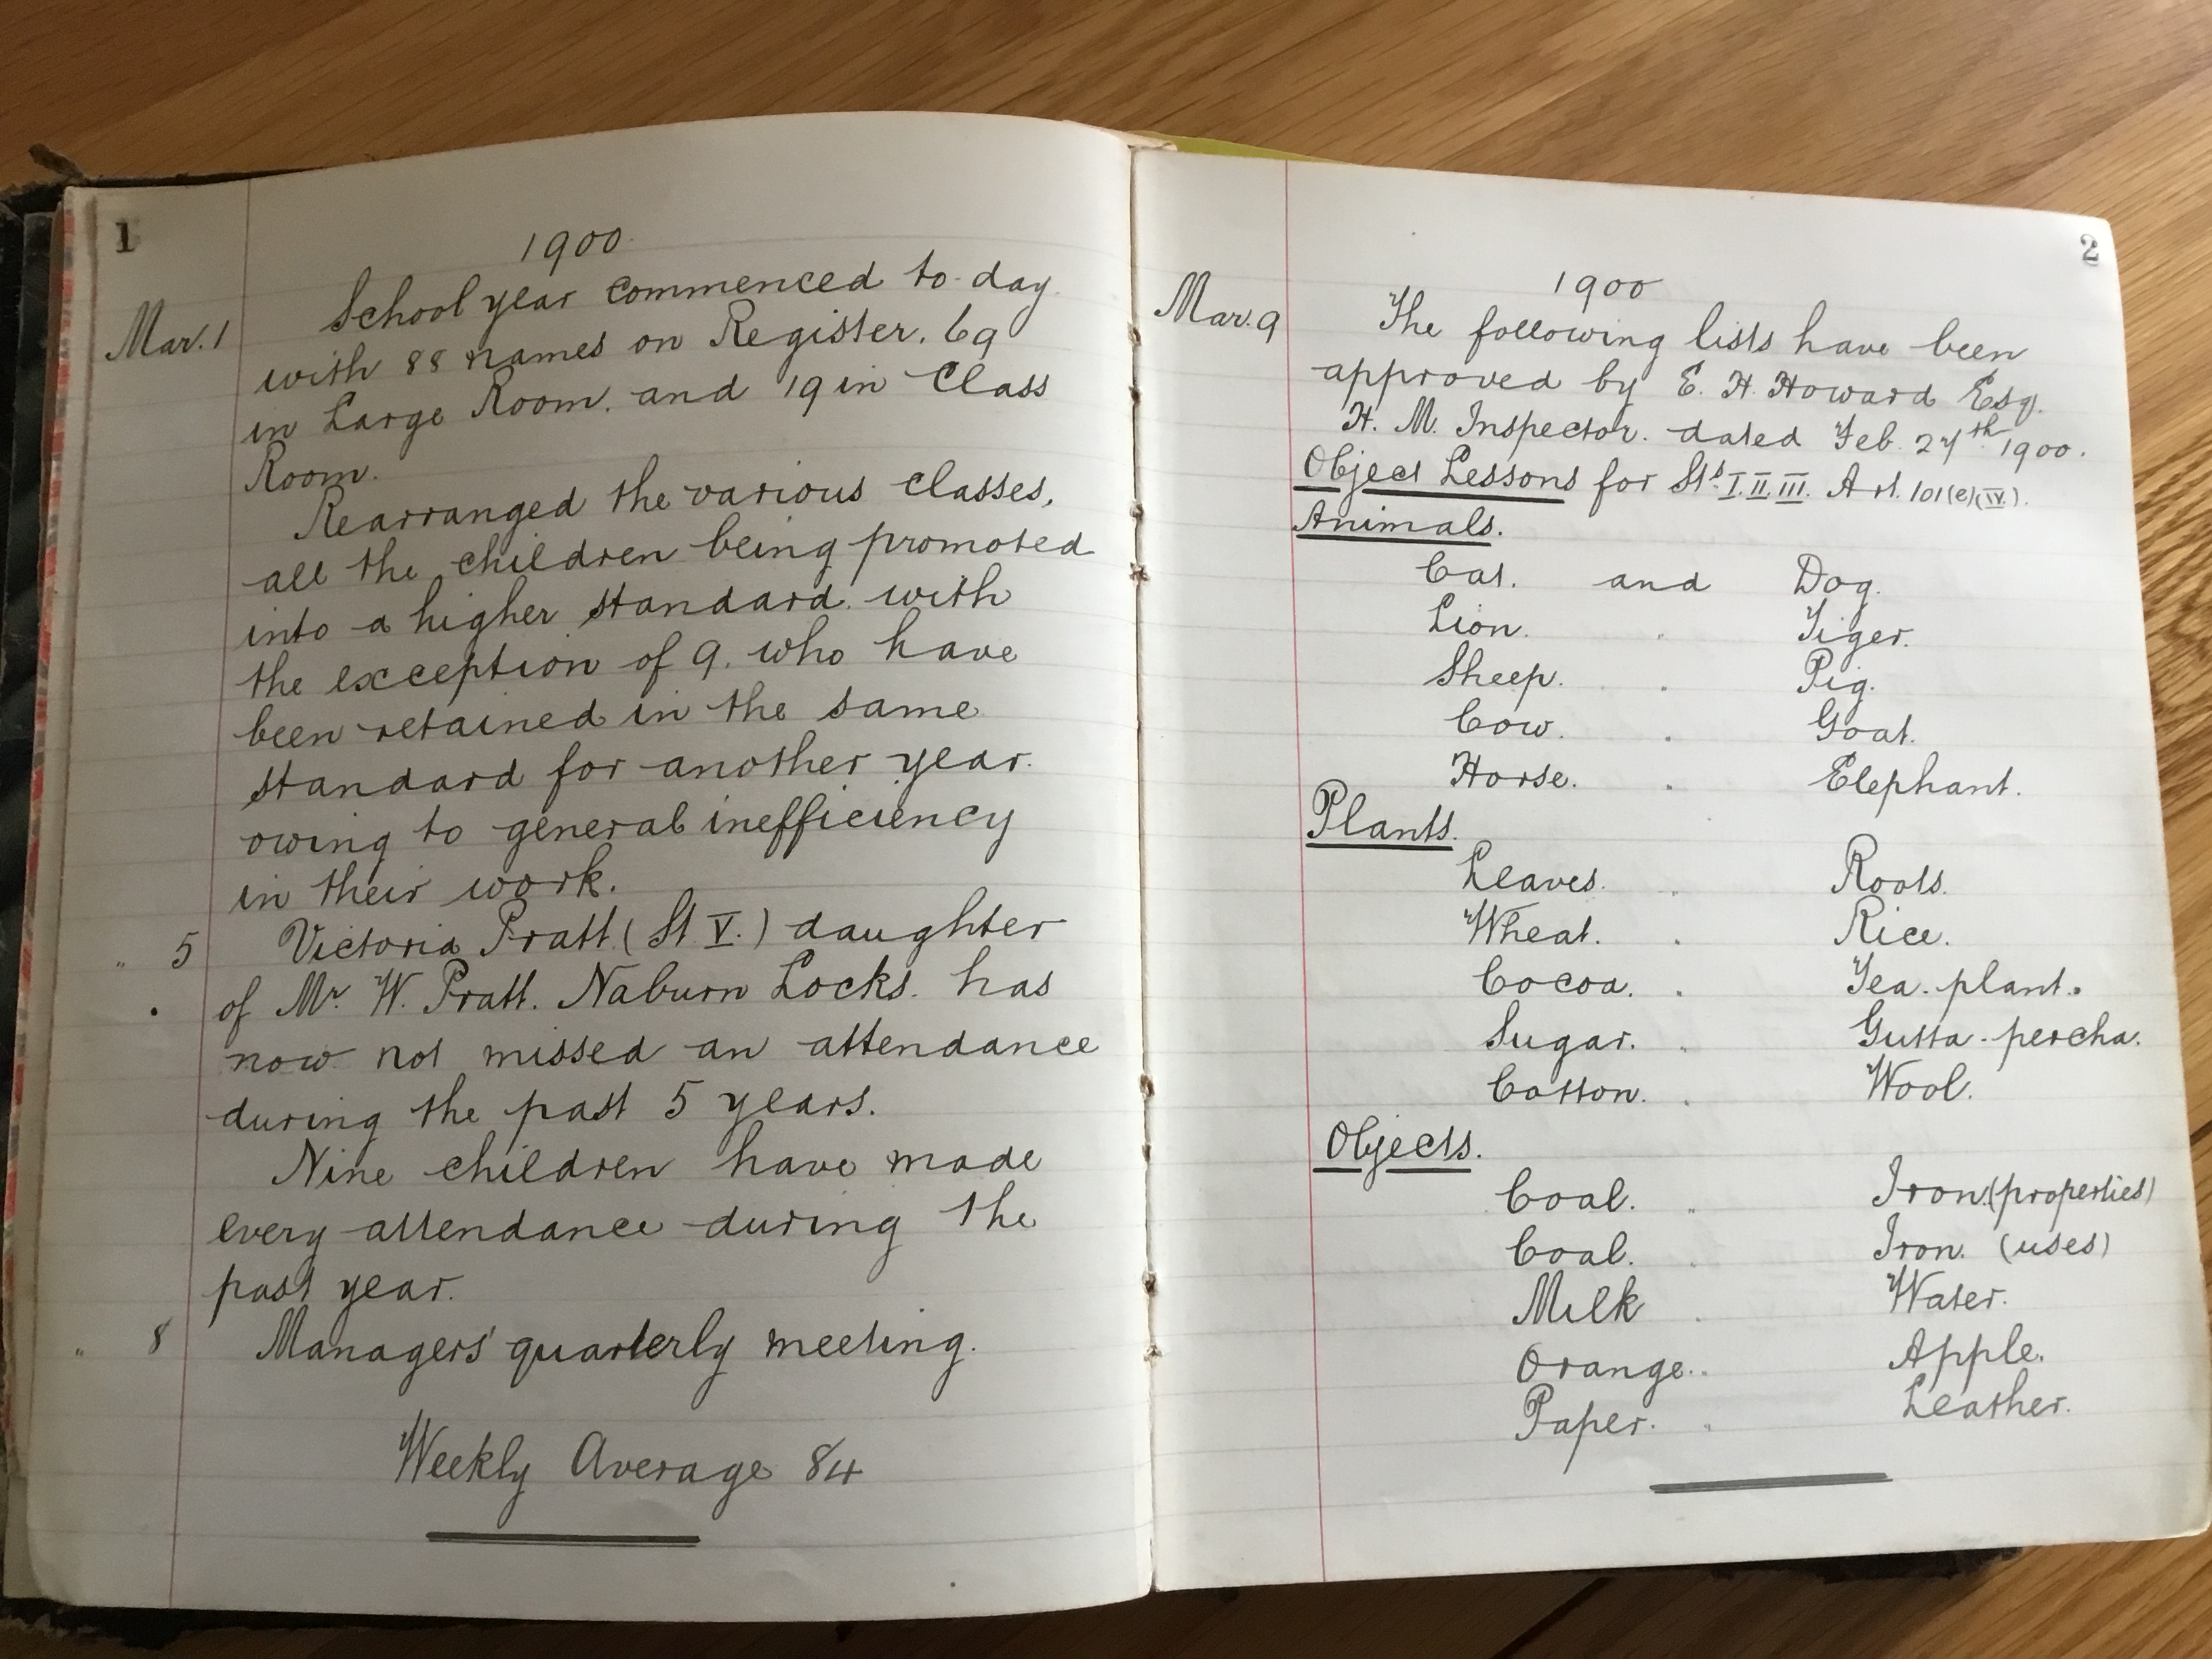 1
1900
Mar. 1 School year commenced to-day
with 88 names on Register. 69
in Large Room. and 19 in Class
Room.
Rearranged the various classes,
all the children being promoted
into a higher standard. with
the exception of 9. who have
been retained in the same
standard for another year.
owing to general inefficiency
in their work.
" 5 Victoria Pratt (St V.) daughter
of Mr W. Pratt. Naburn Locks. has
now not missed an attendance
during the past 5 years.
Nine children have made
every attendance during the
past year.
" 8 Managers' quarterly meeting.
Weekly Average 84
2
1900
Mar. 9 The following lists have been
approved by E. H. Howard Esq.
H. M. Inspector. dated Feb. 27th 1900.
Object Lessons for Sts I. II. III. Art. 101(e)(IV.).
Animals.
Cat. and Dog.
Lion. " Tiger.
Sheep. " Pig.
Cow. " Goat.
Horse. " Elephant.
Plants.
Leaves. " Roots.
Wheat. " Rice.
Cocoa. " Tea-plant.
Sugar. " Gutta-percha.
Cotton. " Wool.
Objects.
Coal. " Iron. (properties)
Coal. " Iron. (uses)
Milk " Water.
Orange. " Apple.
Paper. " Leather.